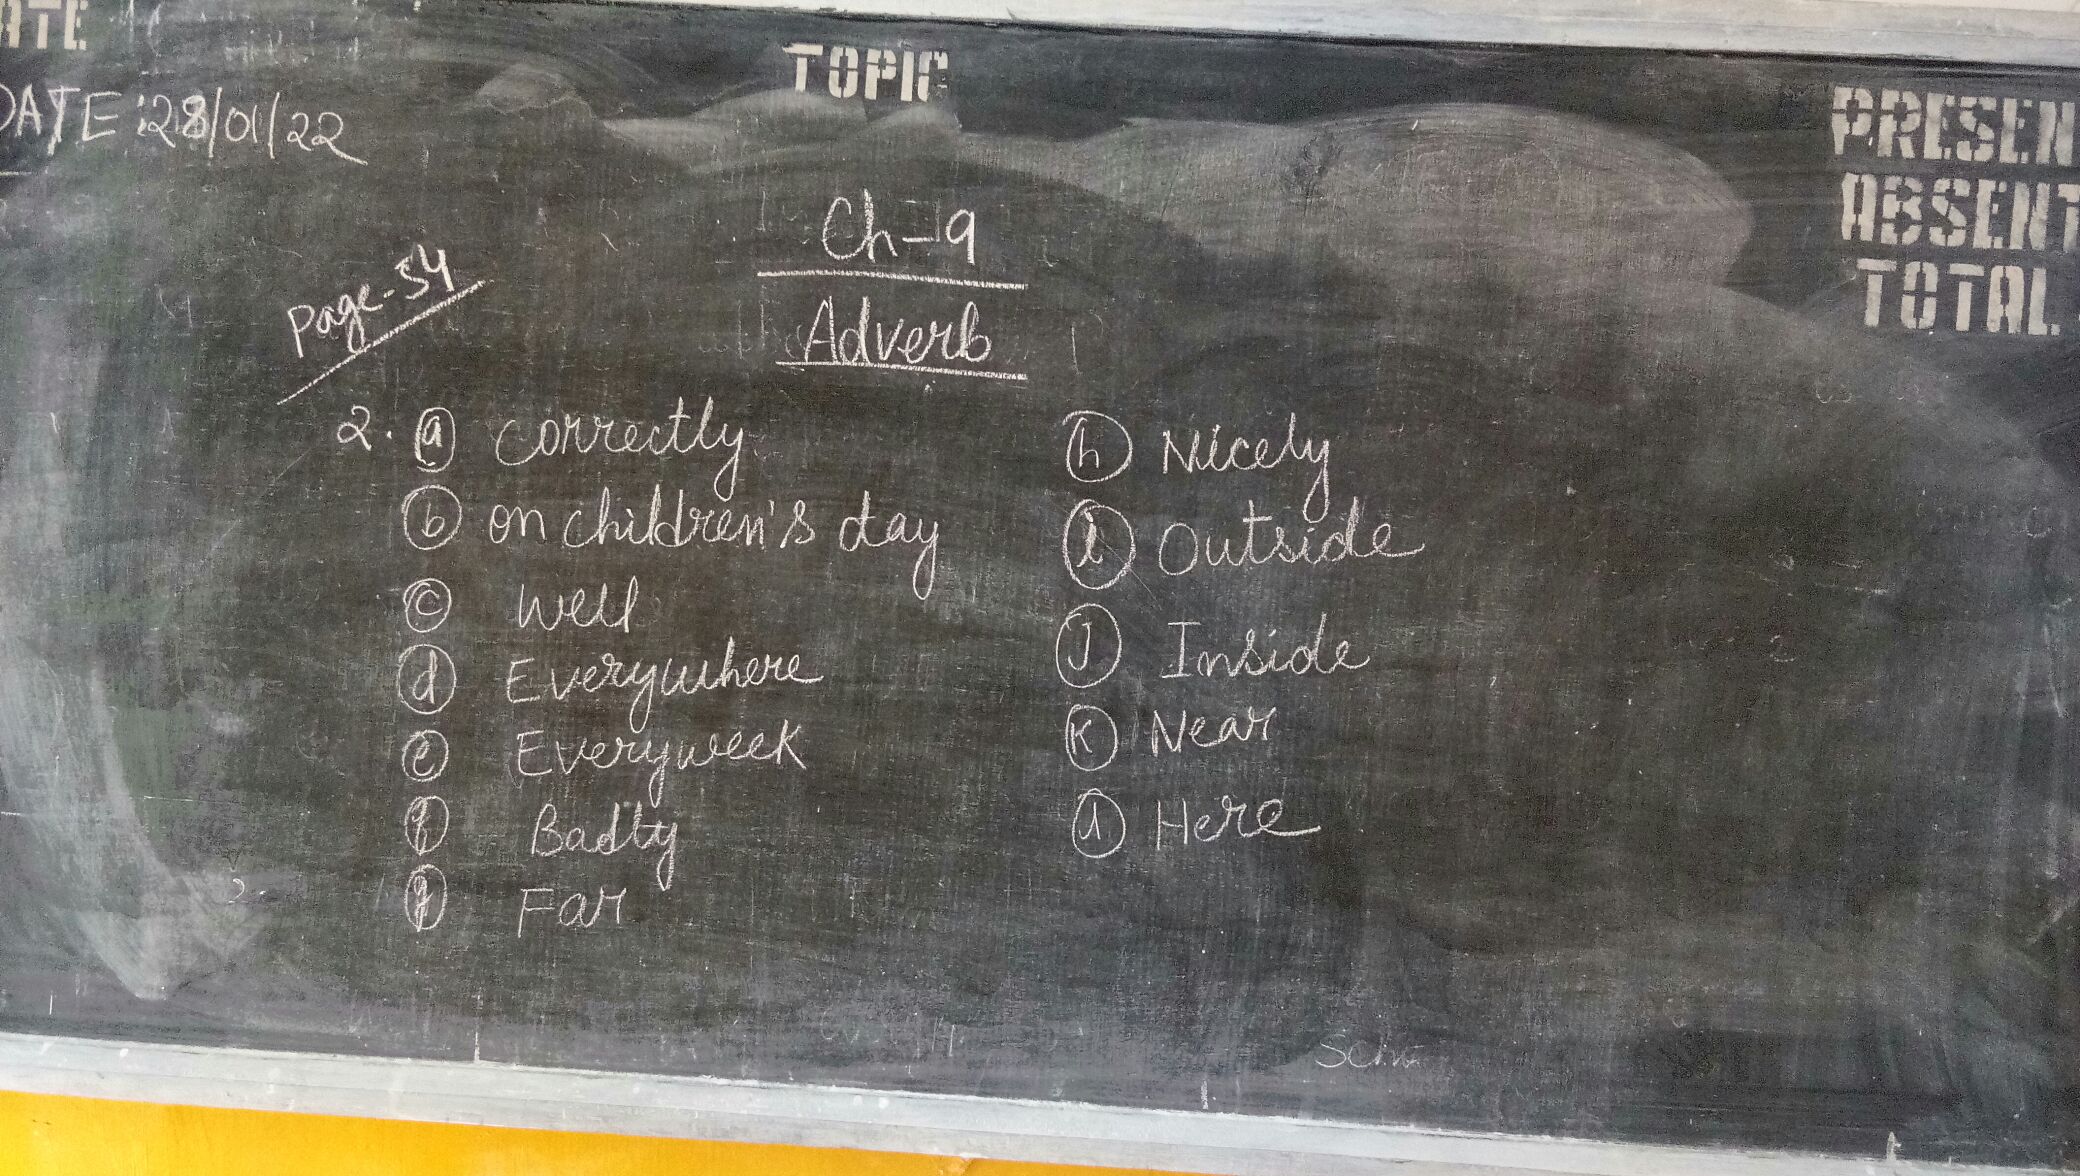 TOPIC
DATE: 28/01/22
PRESEN
ABSENT
TOTAL
Ch-9
Page-54
Adverb
2. a correctly
b on children's day
c well
d Everywhere
e Everyweek
f Badly
g Far
h Nicely
i Outside
J Inside
K Near
l Here